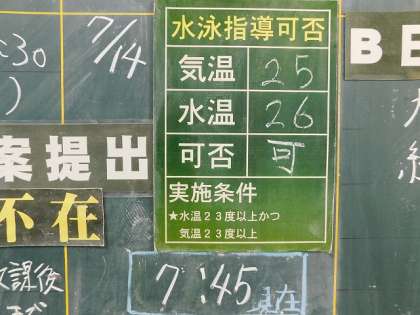 7/14
30
)
案提出
不在
放課後
水泳指導可否
気温 25
水温 26
可否 可
実施条件
★水温23度以上かつ
気温23度以上
7:45 現在
B